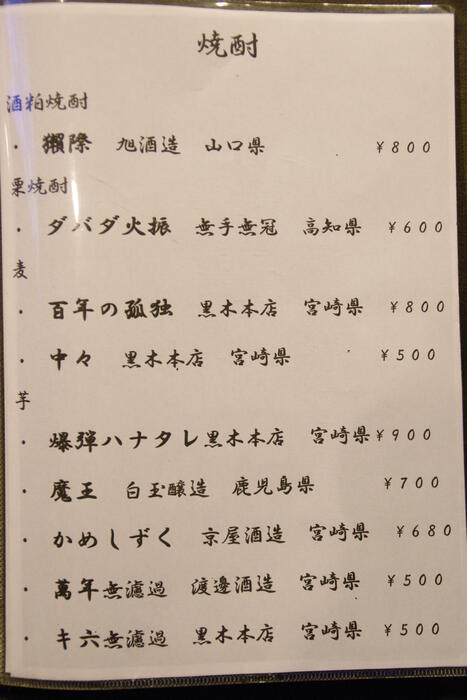 焼酎
酒粕焼酎
・ 獺祭 旭酒造 山口県 ￥800
栗焼酎
・ ダバダ火振 無手無冠 高知県 ￥600
麦
・ 百年の孤独 黒木本店 宮崎県 ￥800
・ 中々 黒木本店 宮崎県 ￥500
芋
・ 爆弾ハナタレ 黒木本店 宮崎県 ￥900
・ 魔王 白玉醸造 鹿児島県 ￥700
・ かめしずく 京屋酒造 宮崎県 ￥680
・ 萬年無濾過 渡邊酒造 宮崎県 ￥500
・ キ六無濾過 黒木本店 宮崎県 ￥500